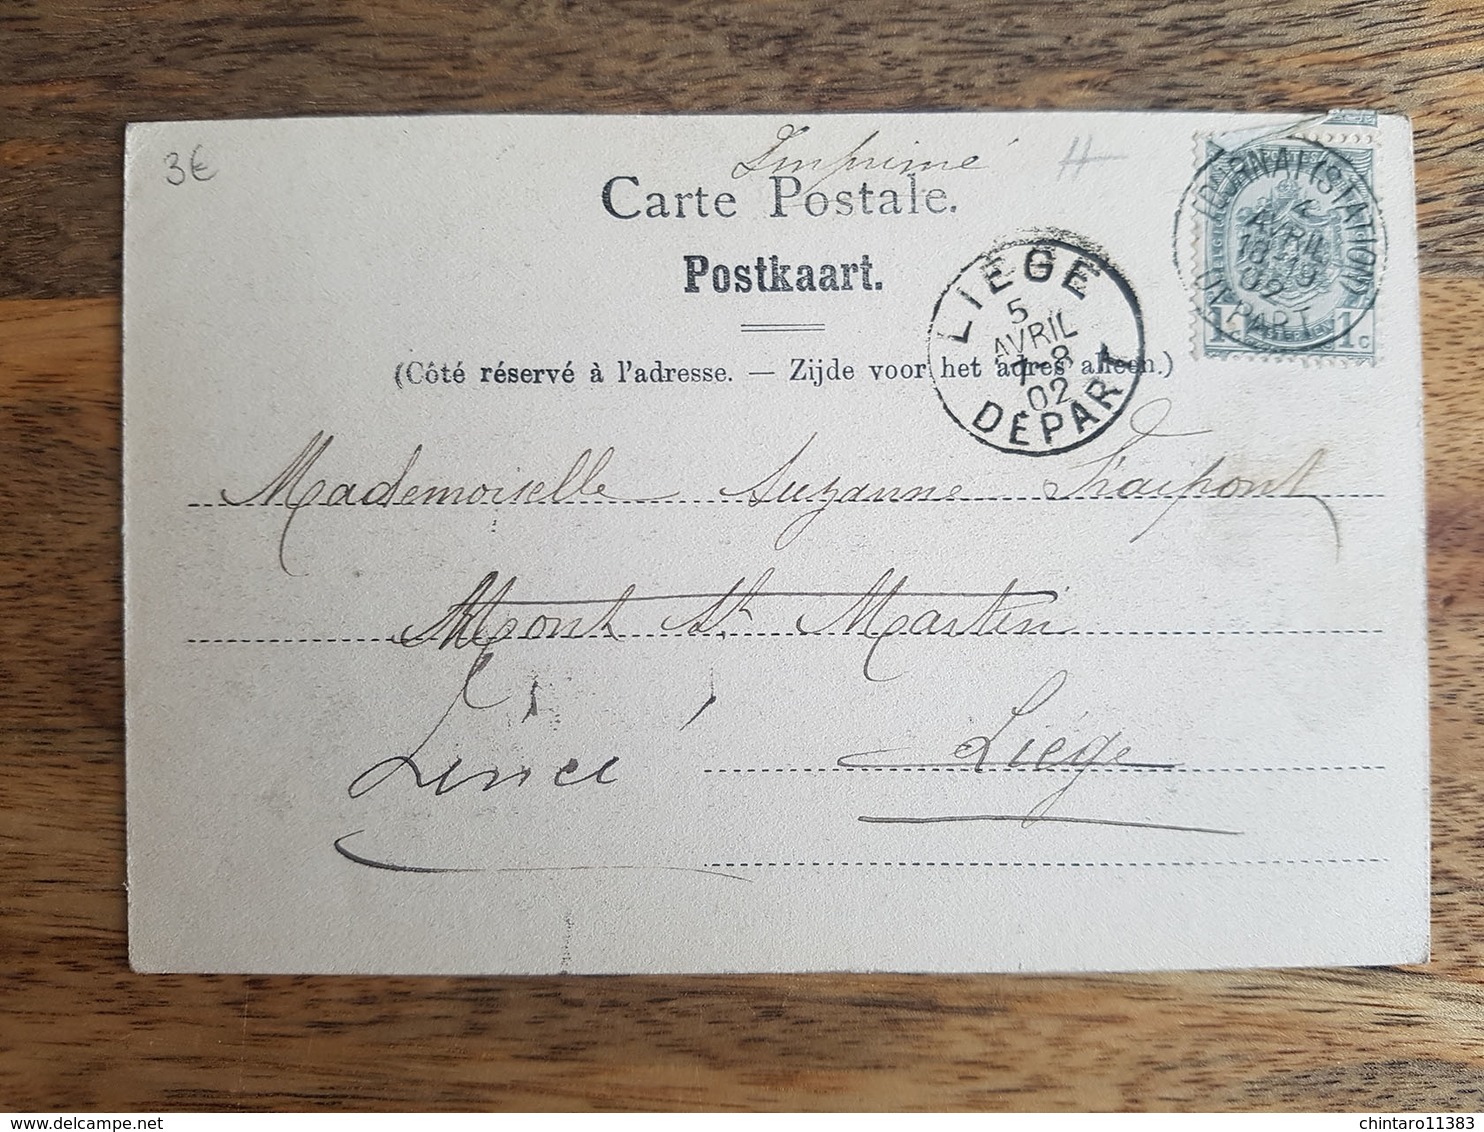 3€
Imprimé
Carte Postale.
Postkaart.
(Côté réservé à l'adresse. — Zijde voor het adres alleen.)
TOURNAI (STATION)
4
AVRIL
18-19
02
DÉPART
1 C 1 C
LIÉGE
5
AVRIL
7-8
02
DÉPART
Mademoiselle Suzanne Fraipont
Mont St Martin
Liége
delcampe.net
chintaro11383